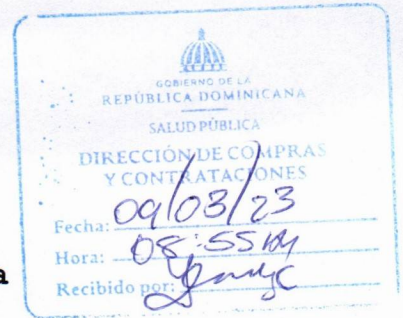 GOBIERNO DE LA
REPÚBLICA DOMINICANA
SALUD PÚBLICA
DIRECCIÓN DE COMPRAS
Y CONTRATACIONES
Fecha: 09/03/23
Hora: 08:55 AM
a
Recibido por: